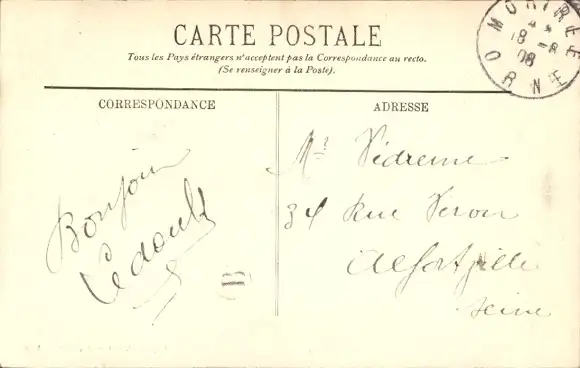 CARTE POSTALE
Tous les Pays étrangers n'acceptent pas la Correspondance au recto.
(Se renseigner à la Poste).
CORRESPONDANCE
ADRESSE
Bonjour
Ledoult
Mr Vidrenne
34 Rue Veron
Alfortville
Seine
MORTRÉE
18 -8
08
ORNE